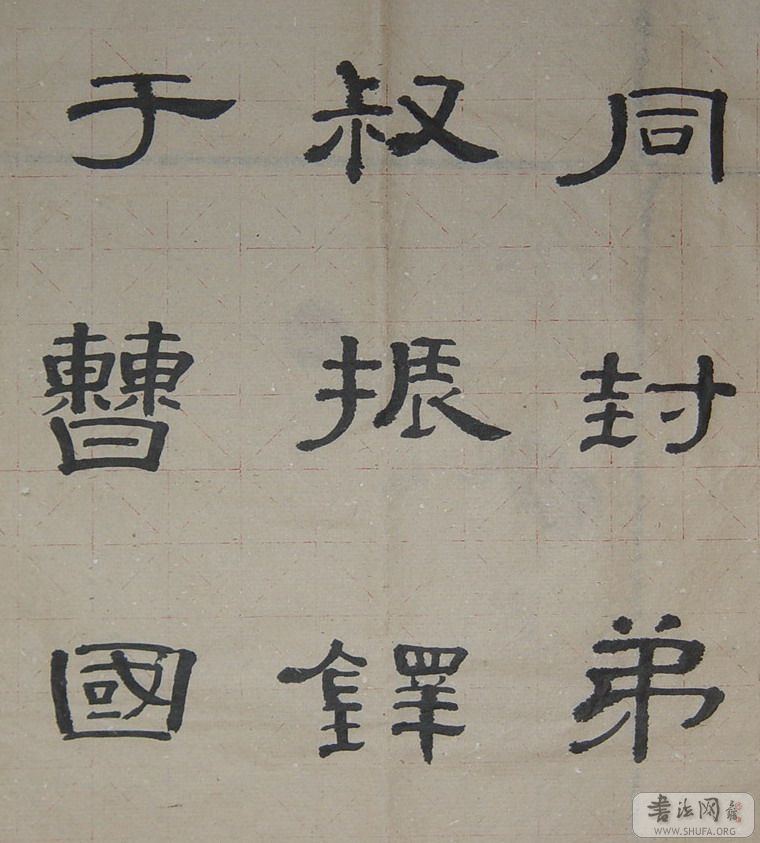 同封弟
叔振鐸
于曹國
書法网
WWW.SHUFA.ORG